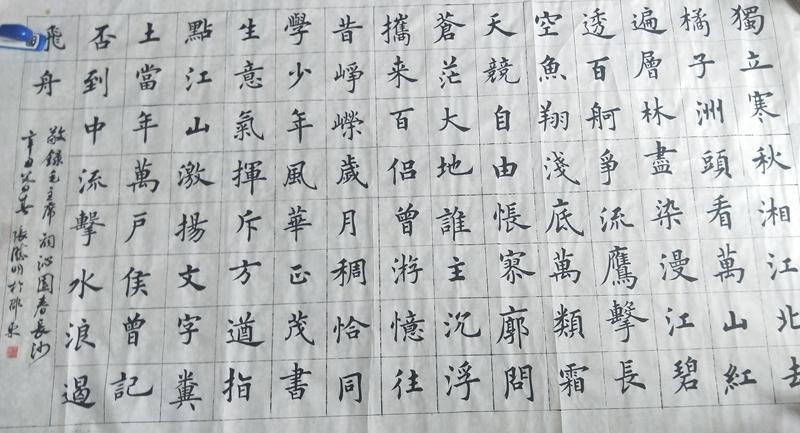 獨立寒秋湘江北去
橘子洲頭看萬山紅
遍層林盡染漫江碧
透百舸爭流鷹擊長
空魚翔淺底萬類霜
天競自由悵寥廓問
蒼茫大地誰主沉浮
攜来百侣曾游憶往
昔崢嶸歲月稠恰同
學少年風華正茂書
生意氣揮斥方遒指
點江山激揚文字糞
土當年萬戶侯曾記
否到中流擊水浪遏
飛舟
敬錄毛主席詞沁園春長沙
辛丑春張勝明於邵東